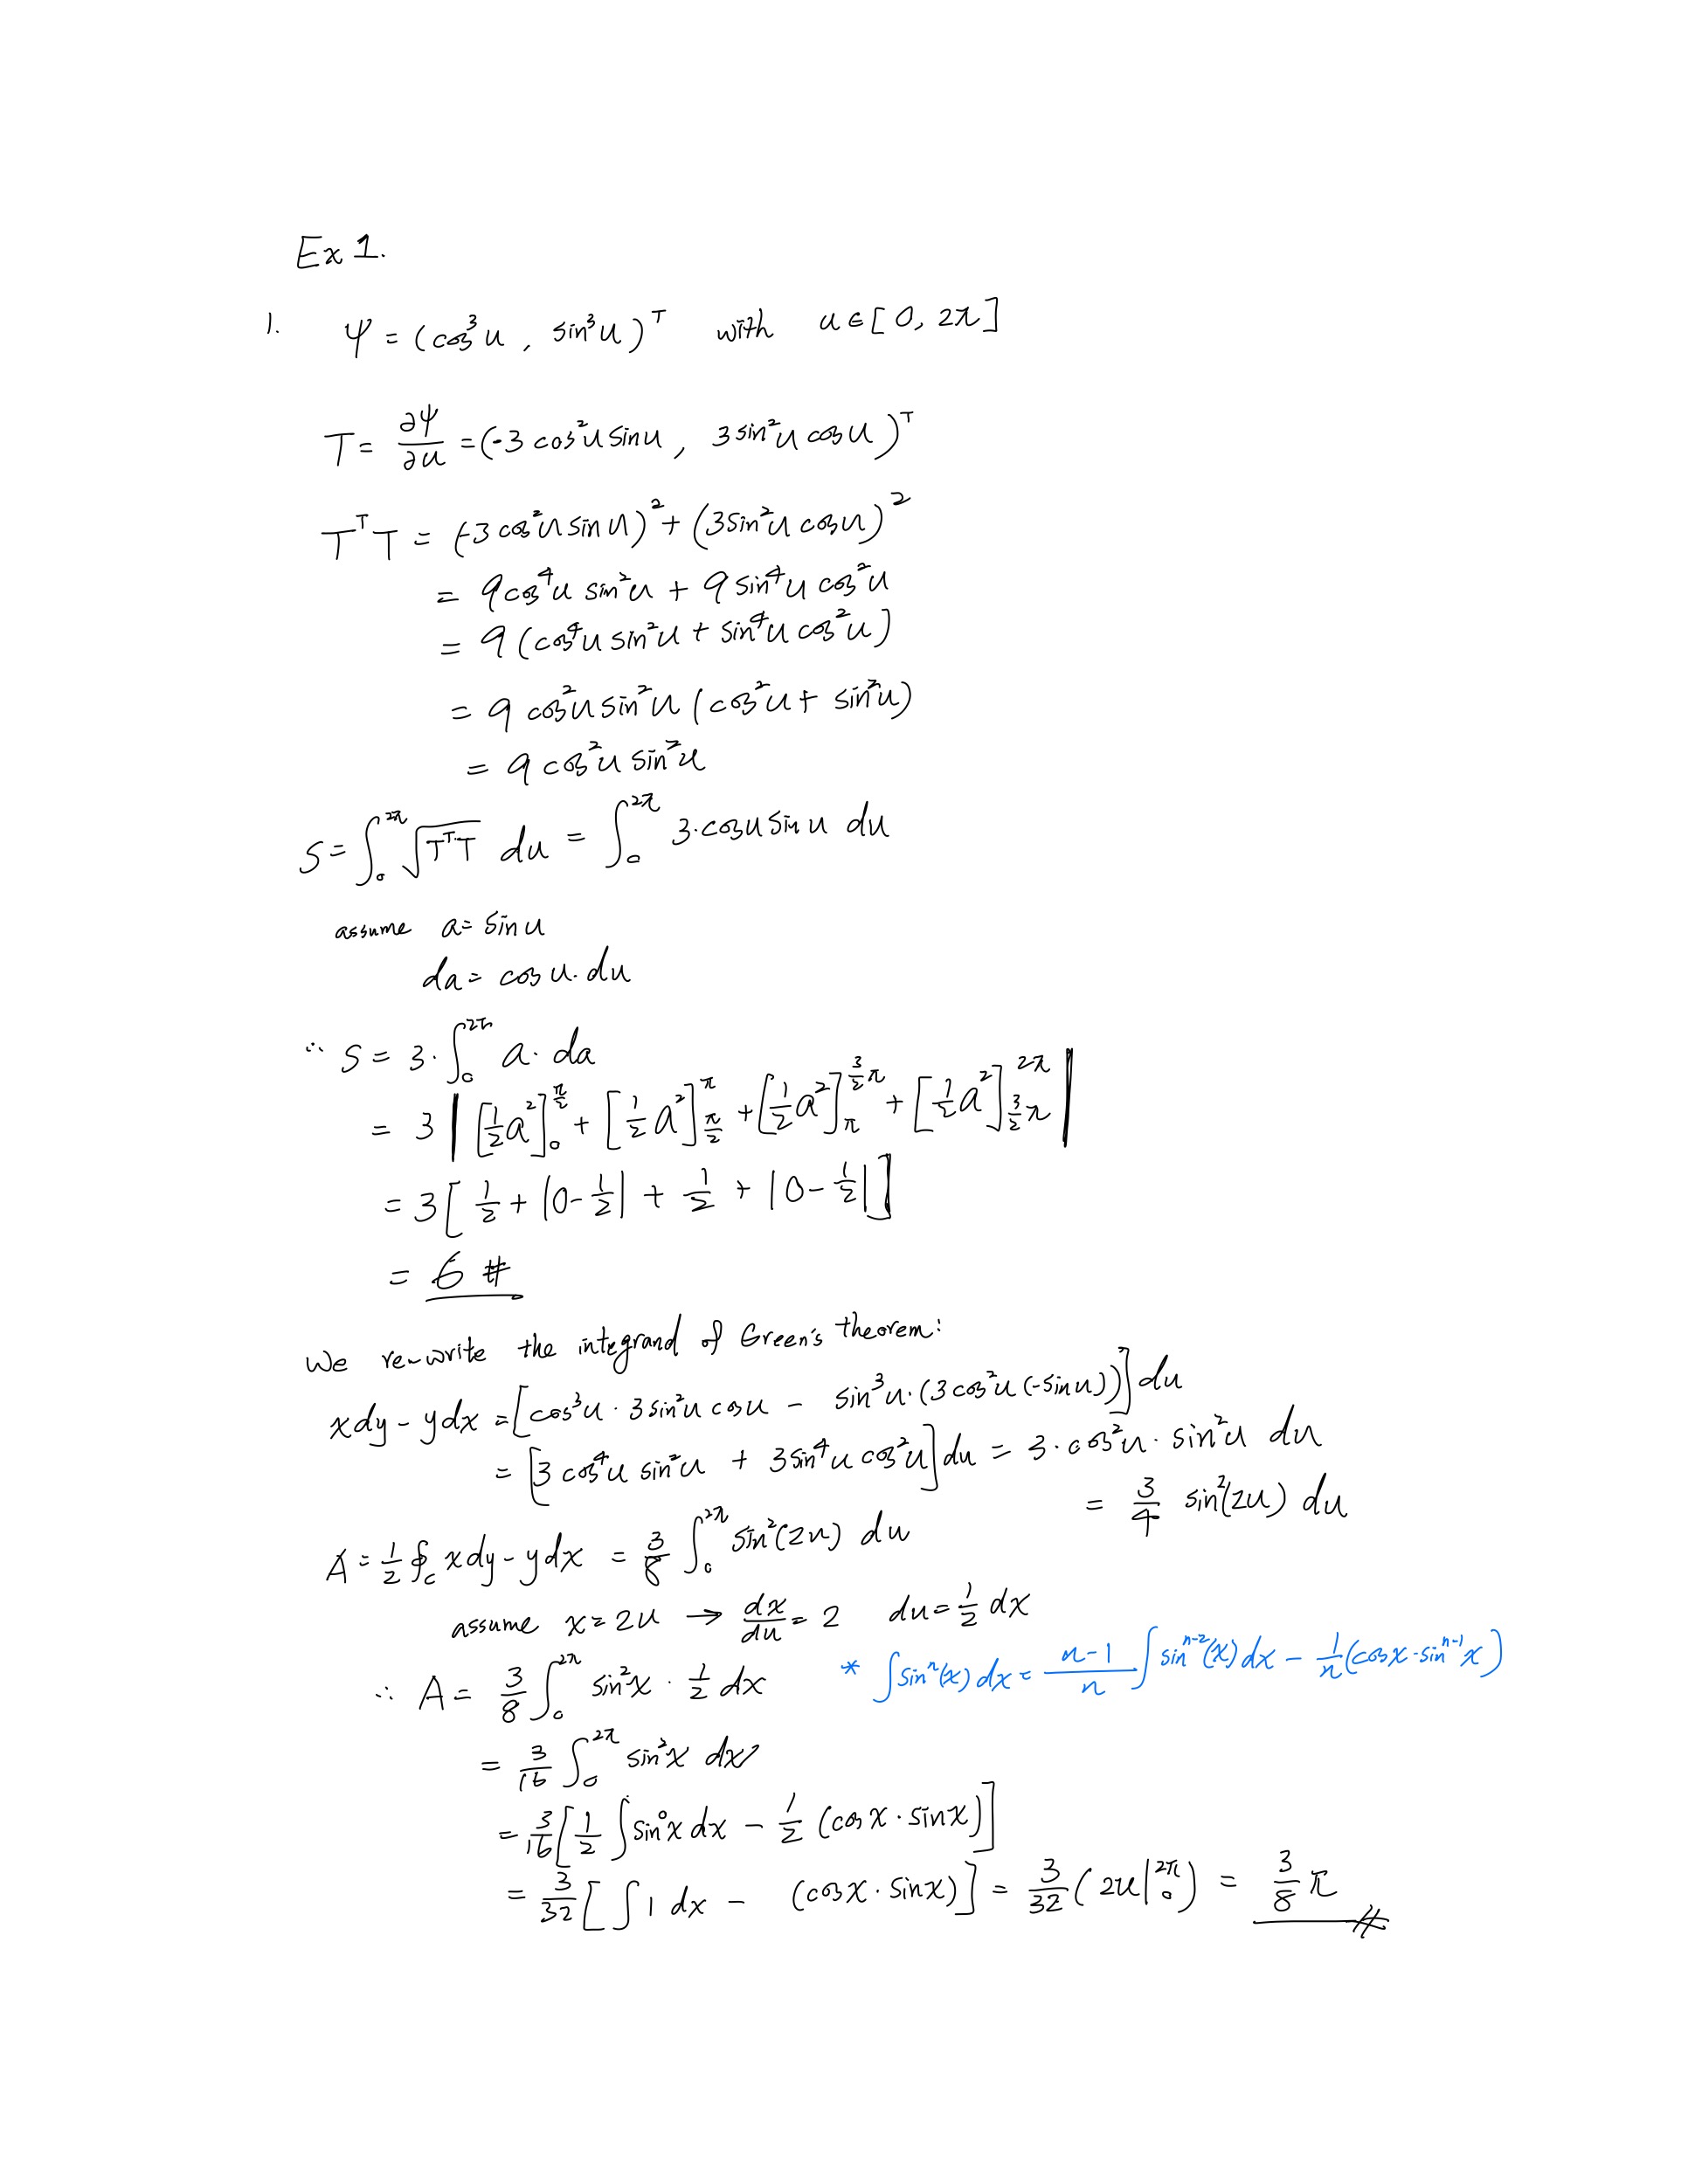 Ex 1.
1. ψ = (cos³u, sin³u)ᵀ with u ∈ [0, 2π]
T = ∂ψ/∂u = (-3 cos²u sin u, 3 sin²u cos u)ᵀ
TᵀT = (-3 cos²u sin u)² + (3 sin²u cos u)²
= 9 cos⁴u sin²u + 9 sin⁴u cos²u
= 9 (cos⁴u sin²u + sin⁴u cos²u)
= 9 cos²u sin²u (cos²u + sin²u)
= 9 cos²u sin²u
S = ∫₀^{2π} √(TᵀT) du = ∫₀^{2π} 3·cos u sin u du
assume a = sin u
da = cos u · du
∴ S = 3·∫₀^{2π} a · da
= 3 | [½a²]₀^{π/2} + [½a²]_{π/2}^{π} + [½a²]_{π}^{3/2 π} + [½a²]_{3/2 π}^{2π} |
= 3 [ ½ + |0-½| + ½ + |0-½| ]
= 6 #
We re-write the integrand of Green's theorem:
xdy - ydx = [cos³u · 3 sin²u cos u - sin³u · (3 cos²u (-sin u))] du
= [3 cos⁴u sin²u + 3 sin⁴u cos²u] du = 3 · cos²u · sin²u du
= 3/4 sin²(2u) du
A = ½ ∮_c xdy - ydx = 3/8 ∫₀^{2π} sin²(2u) du
assume x = 2u → dx/du = 2 du = ½ dx
* ∫ sinⁿ(x) dx = (n-1)/n ∫ sinⁿ⁻²(x) dx - 1/n (cos x · sinⁿ⁻¹ x)
∴ A = 3/8 ∫₀^{2π} sin²x · ½ dx
= 3/16 ∫₀^{2π} sin²x dx
= 3/16 [ ½ ∫ sin⁰x dx - ½ (cos x · sin x) ]
= 3/32 [ ∫ 1 dx - (cos x · sin x) ] = 3/32 ( 2u |₀^{2π} ) = 3/8 π #